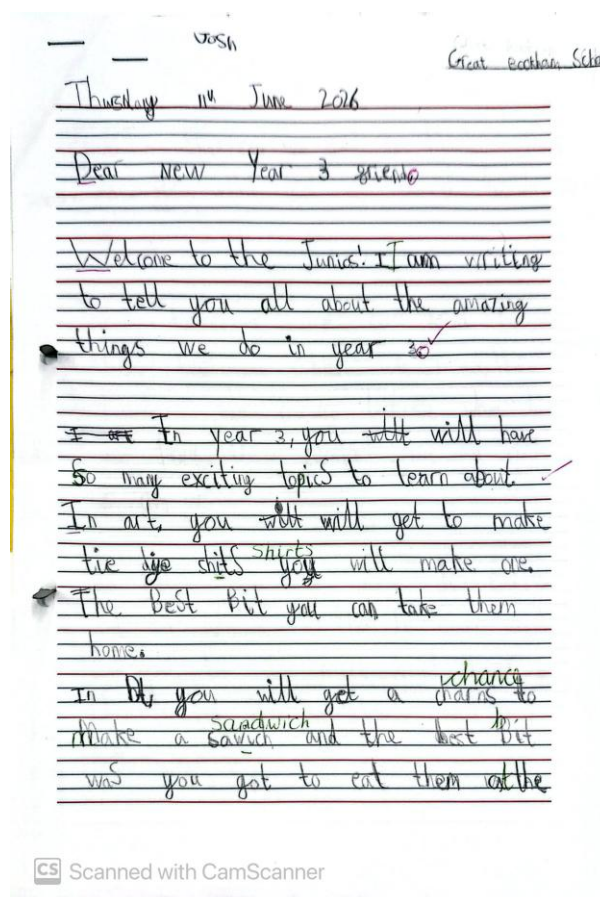 Josh
Great Bookham Scho
Thursday 11th June 2026
Dear New Year 3 friend,
Welcome to the Junios! I I am writing
to tell you all about the amazing
things we do in year 3.
I art In year 3, you will will have
So many exciting topics to learn about.
In art, you will will get to make
shirts
tie dye shits you will make one.
The Best Bit you can take them
home.
chance
In Dt, you will get a charns to
sandwich b
Make a sawich and the best bit
was you got to eat them at the
CS Scanned with CamScanner